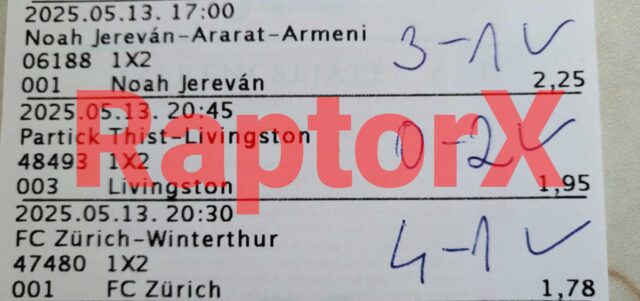 2025.05.13. 17:00
Noah Jereván-Ararat-Armeni
3-1 ✓
06188 1X2
001 Noah Jereván 2,25
2025.05.13. 20:45
Partick Thist-Livingston
0-2 ✓
48493 1X2
003 Livingston 1,95
RaptorX
2025.05.13. 20:30
FC Zürich-Winterthur
4-1 ✓
47480 1X2
001 FC Zürich 1,78